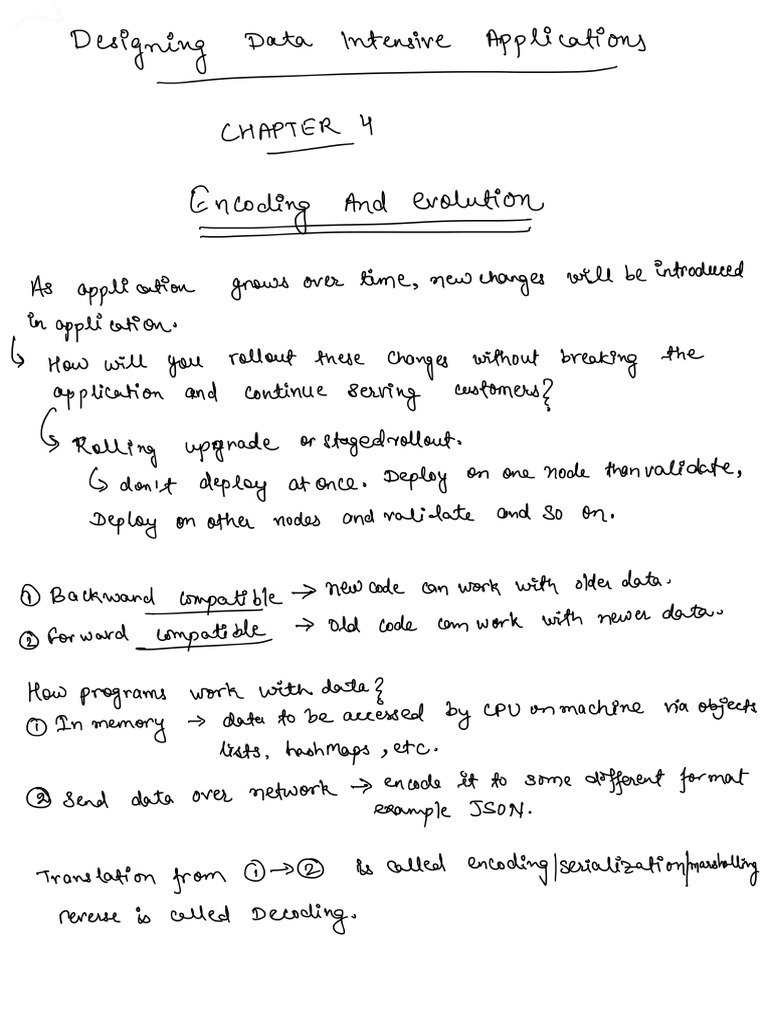 Designing Data Intensive Applications
CHAPTER 4
Encoding And evolution
As application grows over time, new changes will be introduced
in application.
↳ How will you rollout these changes without breaking the
application and continue serving customers?
↳ Rolling upgrade or staged rollout.
↳ don't deploy at once. Deploy on one node then validate,
Deploy on other nodes and validate and so on.
① Backward compatible → new code can work with older data.
② forward compatible → old code can work with newer data.
How programs work with data?
① In memory → data to be accessed by CPU on machine via objects
lists, hashMaps, etc.
② Send data over network → encode it to some different format
example JSON.
Translation from ① → ② is called encoding/serialization/marshalling
reverse is called Decoding.